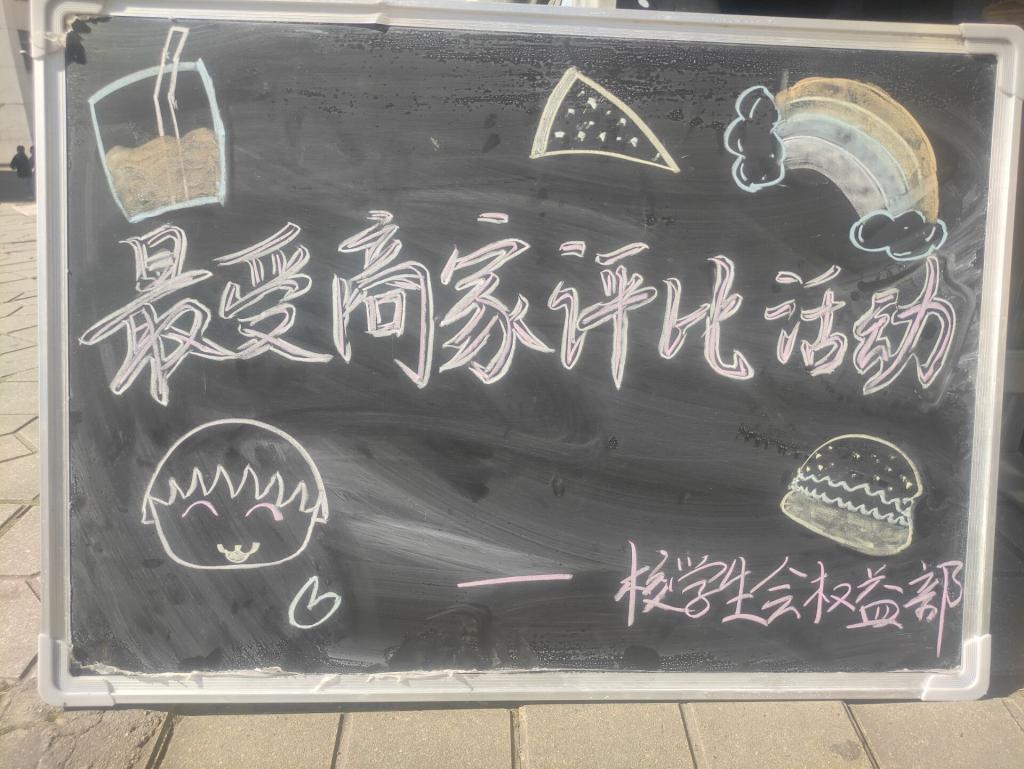 最受商家评比活动
—校学生会权益部